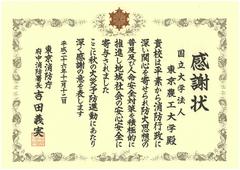 感謝状
国立大学法人
東京農工大学殿
貴校は平素から消防行政に
深い関心を寄せられ防火思想の
普及及び人命安全対策を積極的に
推進し地域社会の安心安全に
寄与されました
ここに秋の火災予防運動にあたり
深く感謝の意を表します
平成二十六年十一月十二日
東京消防庁
府中消防署長吉田義実